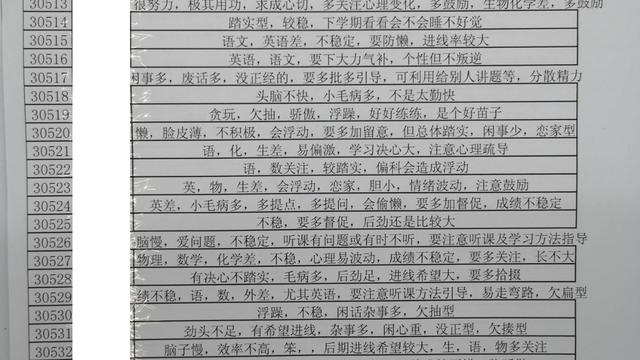 30513 很努力，极其用功，求成心切，多关注心理变化，多鼓励，生物化学差，多鼓励
30514 踏实型，较稳，下学期看看会不会睡不好觉
30515 语文，英语差，不稳定，要防懒，进线率较大
30516 英语，语文，要下大力气补，个性但不叛逆
30517 闲事多，废话多，没正经的，要多批多引导，可利用给别人讲题等，分散精力
30518 头脑不快，小毛病多，不是太勤快
30519 贪玩，欠抽，骄傲，浮躁，好好练练，是个好苗子
30520 懒，脸皮薄，不积极，会浮动，要多加留意，但总体踏实，闲事少，恋家型
30521 语，化，生差，易偏激，学习决心大，注意心理疏导
30522 语，数关注，较踏实，偏科会造成浮动
30523 英，物，生差，会浮动，恋家，胆小，情绪波动，注意鼓励
30524 英差，小毛病多，多提点，多提问，会偷懒，要多加督促，成绩不稳定
30525 不稳，要多督促，后劲还是比较大
30526 脑慢，爱问题，不稳定，听课有问题或有时不听，要注意听课及学习方法指导
30527 物理，数学，化学差，不稳，心理易波动，成绩不稳定，要多关注，长不大
30528 有决心不踏实，毛病多，后劲足，进线希望大，要多拾掇
30529 绩不稳，语，数，外差，尤其英语，要注意听课方法引导，易走弯路，欠扁型
30530 浮躁，不稳，闲话杂事多，欠抽型
30531 劲头不足，有希望进线，杂事多，闲心重，没正型，欠揍型
30532 脑子慢，效率不高，笨，，后期进线希望较大，生，语，物多关注